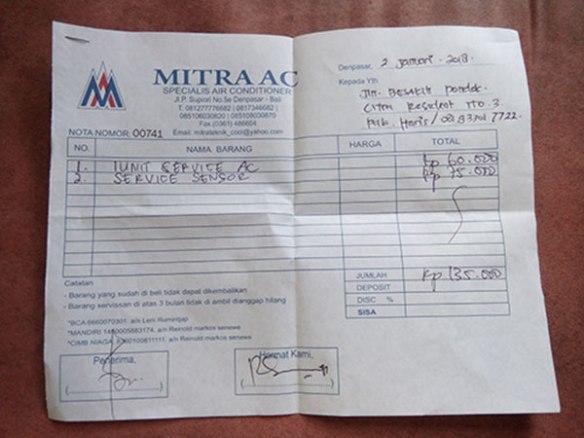 MITRA AC
SPECIALIS AIR CONDITIONER
Jl.P. Supiori No.5e Denpasar - Bali
T. 081277776682 | 0817346682 |
085106030820 | 085109030870
Fax.(0361) 486604
Email: mitrateknik_coo@yahoo.com
NOTA NOMOR 00741
Denpasar, 2 Januari. 2018.
Kepada Yth
Jln. Besakih Pondok.
Citra Resident No 3.
NO. NAMA BARANG HARGA TOTAL
1. 1 UNIT SERVICE AC Rp 60.000
2. SERVICE SENSOR Rp 75.000
JUMLAH Rp 135.000
DEPOSIT
DISC %
SISA
Catatan
- Barang yang sudah di beli tidak dapat dikembalikan
- Barang servissan di atas 3 bulan tidak di ambil dianggap hilang
*BCA 6660070301 a/n Leni Rumintjap
*MANDIRI a/n Reinold markos senewe
*CIMB NIAGA a/n Reinold markos senewe
Penerima,
Hormat Kami,